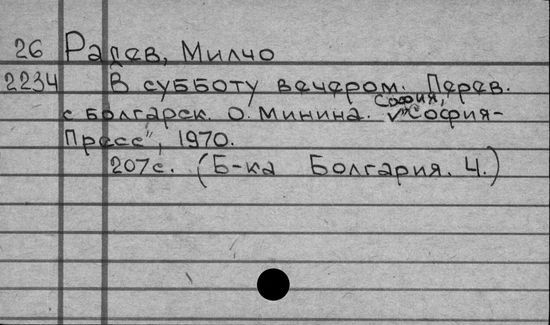 26 Радев, Милчо
2234 В субботу вечером. Перев.
с болгарск. О. Минина. София, "София-
Пресс", 1970.
207с. (Б-ка Болгария. 4.)